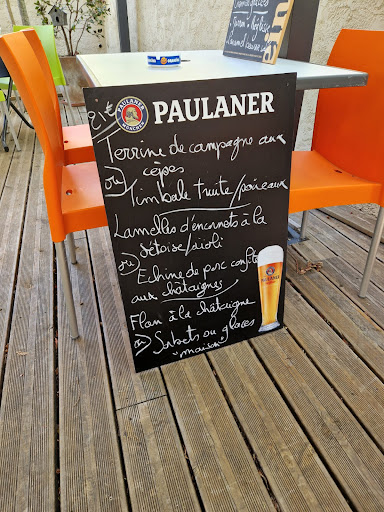 PAULANER
PAULANER
MÜNCHEN
21€
Terrine de campagne aux
cèpes
ou
Timbale truite/poireaux
Lamelles d'encornets à la
Sétoise/aïoli
ou
Echine de porc confite
aux châtaignes
Flan à la châtaigne
ou
Sorbets ou glaces
"maison"
PAULANER